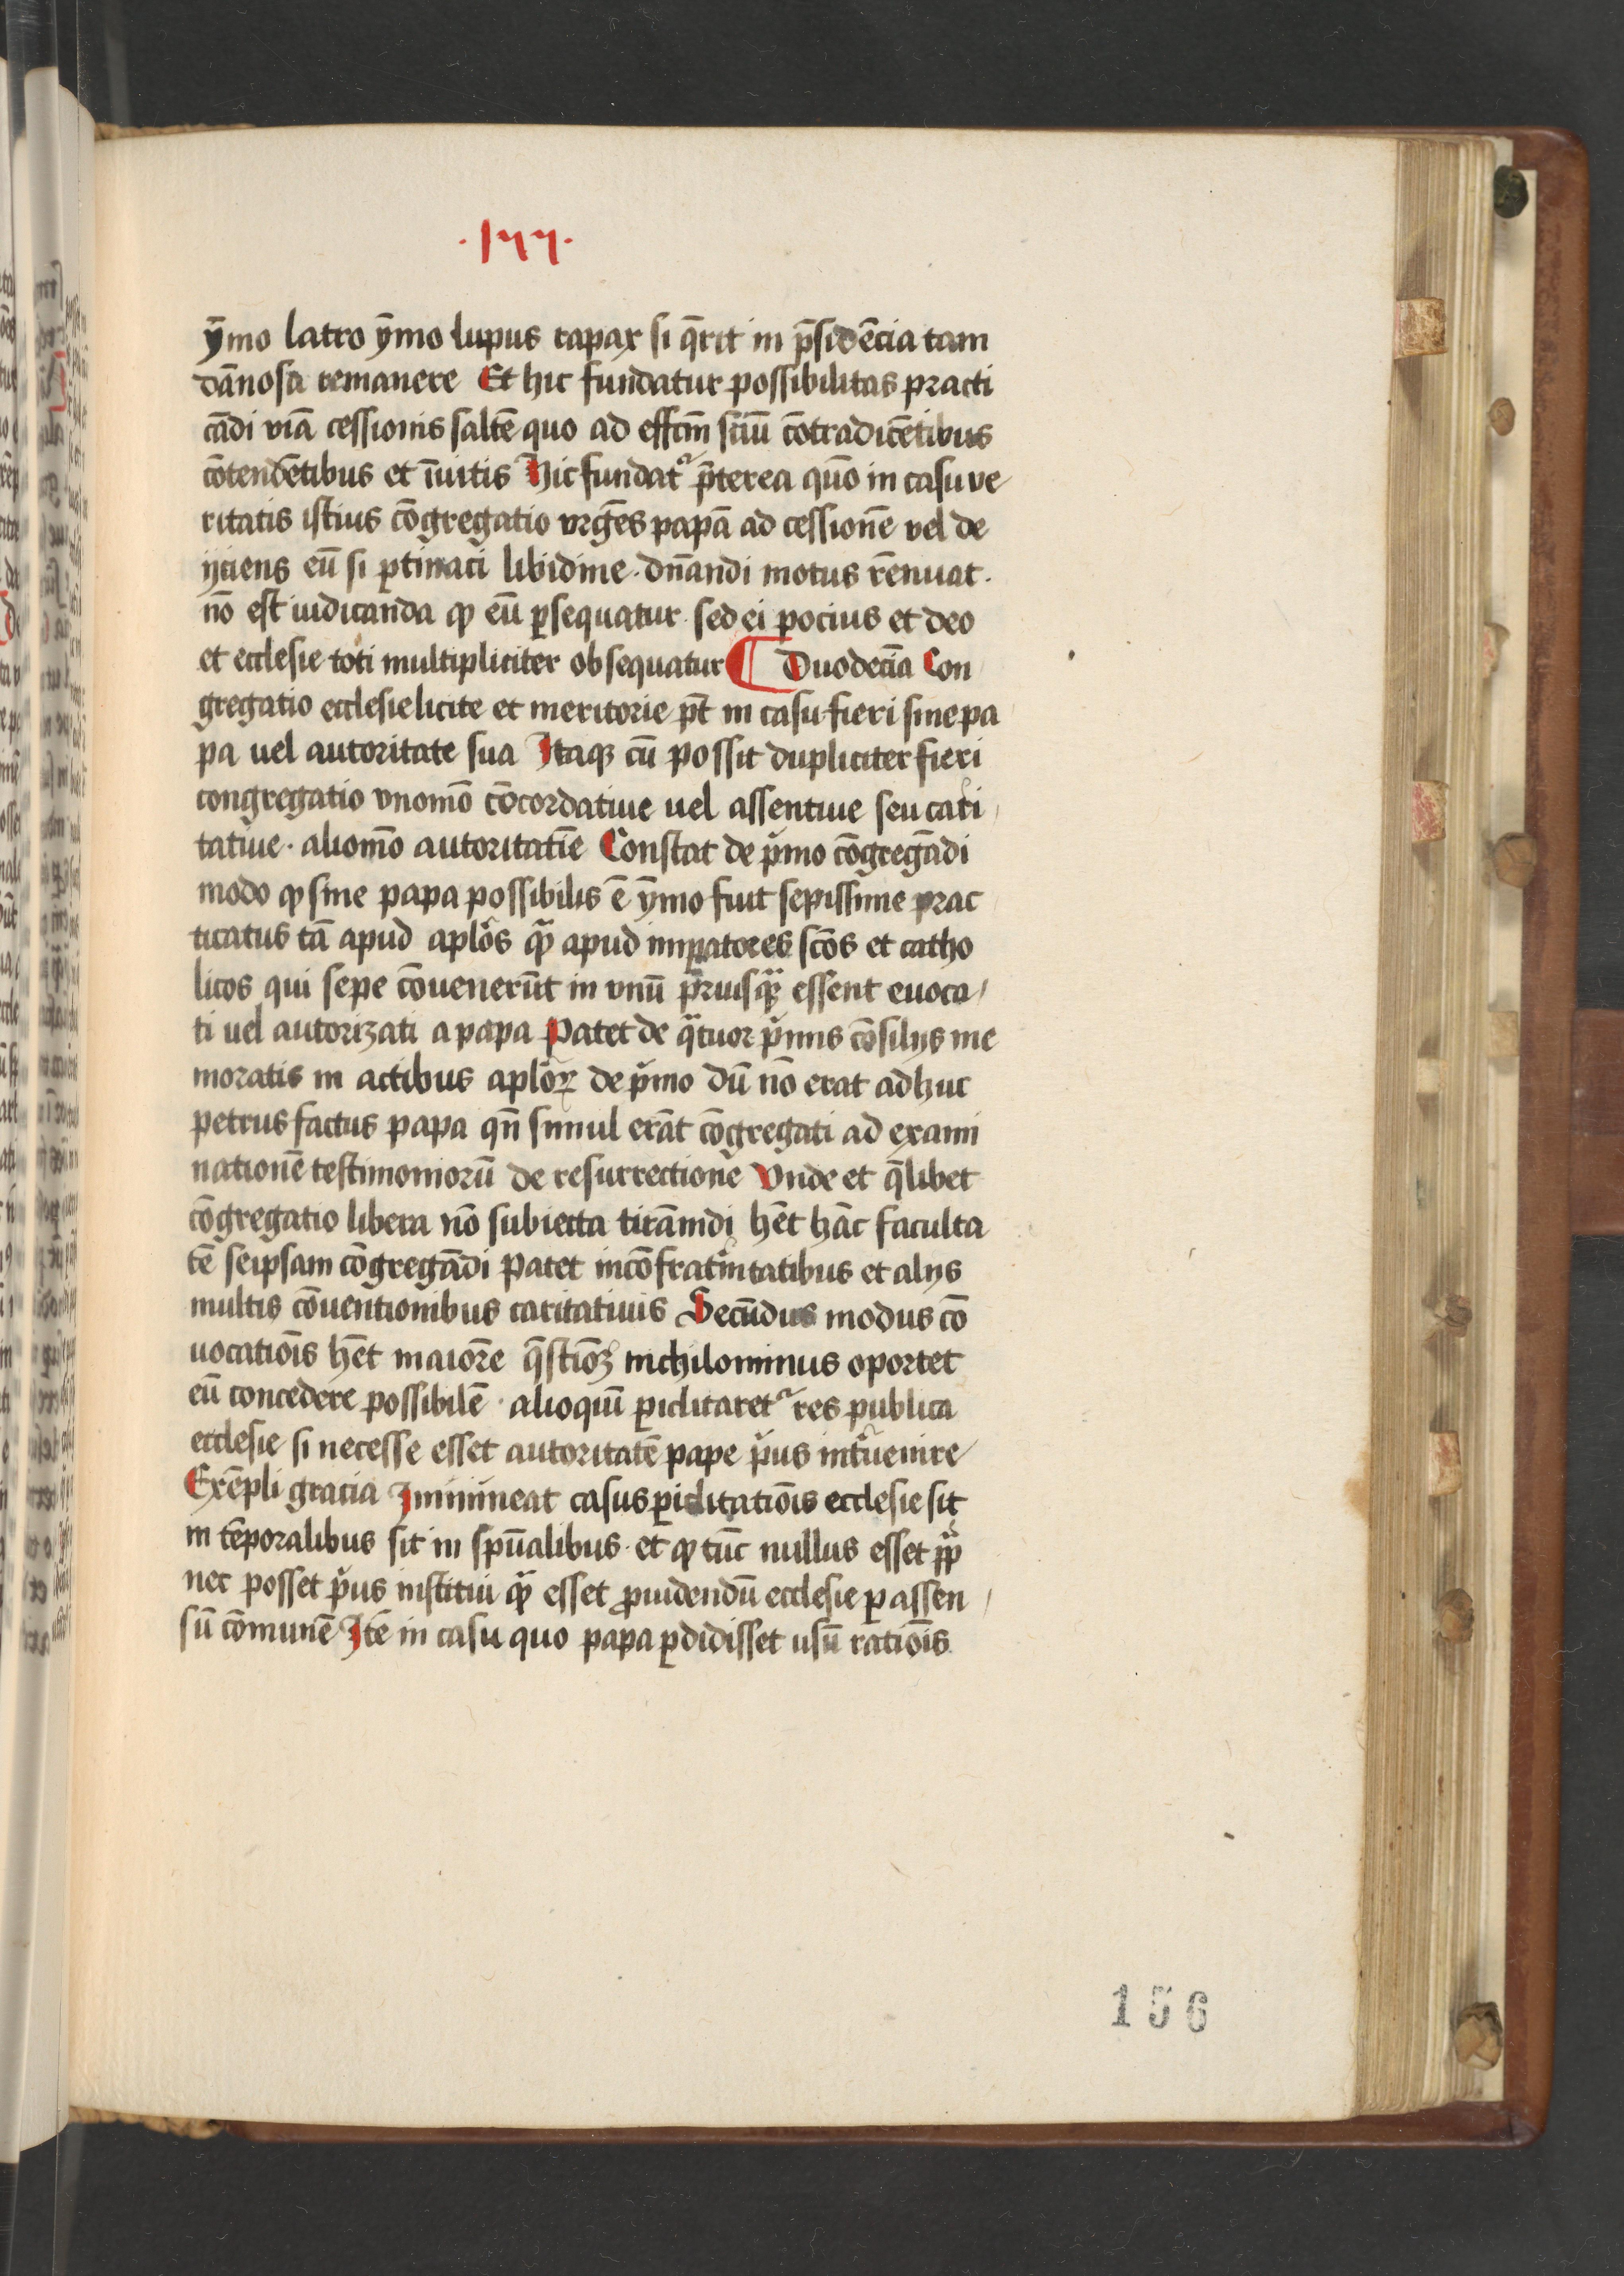 ·177·
ym̄o latro ym̄o lupus rapax si q̄rit in p̄sidēcia tam
dānosa remanere Et hic fundatur possibilitas practi
cādi viā cessionis saltē quo ad effcm̄ sciū cōtradicētibus
cōtendētibus et īuitis Hic fundatᷣ p̄terea quō in casu ve
ritatis istius cōgregatio vrgēs papā ad cessionē vel de
ijciens eū si ꝑtinaci libidine· dn̄andi motus rēnuat·
nō est iudicanda ꝙ eū ꝑsequatur· sed ei pocius et deo
et ecclesie toti multipliciter obsequatur ¶ Duodecīa Con
gregatio ecclesie licite et meritorie pt̄ in casu fieri sine pa
pa uel autoritate sua Itaqꝫ cū possit dupliciter fieri
congregatio vnomō cōcordatiue uel assentiue seu cari
tatiue· aliomō autoritatīe Constat de pͥmo cōgregādi
modo ꝙ sine papa possibilis ē ym̄o fuit sepissime prac
ticatus tā apud apl̄os qͣꝫ apud imꝑatores sc̄os et catho
licos qui sepe cōuenerūt in vnū priusqͣꝫ essent euoca
ti uel autorizati a papa Patet de qͣtuor pͥmis cōsilijs me
moratis in actibus apl̄oꝝ de pͥmo dū nō erat adhuc
petrus factus papa qn̄ simul erāt cōgregati ad exami
nationē testimoniorū de resurrectione Vnde et q̄libet
cōgregatio libera nō subiecta tirānidi hēt hāc faculta
tē seipsam cōgregādi Patet in cōfratͤnitatibus et alijs
multis cōuentionibus caritatiuis Secūdus modus cō
uocatiōis hēt maiorē q̄stiōꝫ nichilominus oportet
eū concedere possibilē· alioquiū ꝑiclitaretᷣ res publica
ecclesie si necesse esset autoritatē pape pͥus intͤuenire
Exēpli gracia Immineat casus ꝑiclitatiōis ecclesie sit
in tēporalibus sit in spūalibus· et ꝙ tūc nullus esset pp̄
nec posset pͥus institui qͣꝫ esset ꝓuidendū ecclesie ꝑ assen
sū cōmunē Itē in casu quo papa ꝑdidisset usū ratiōis
156